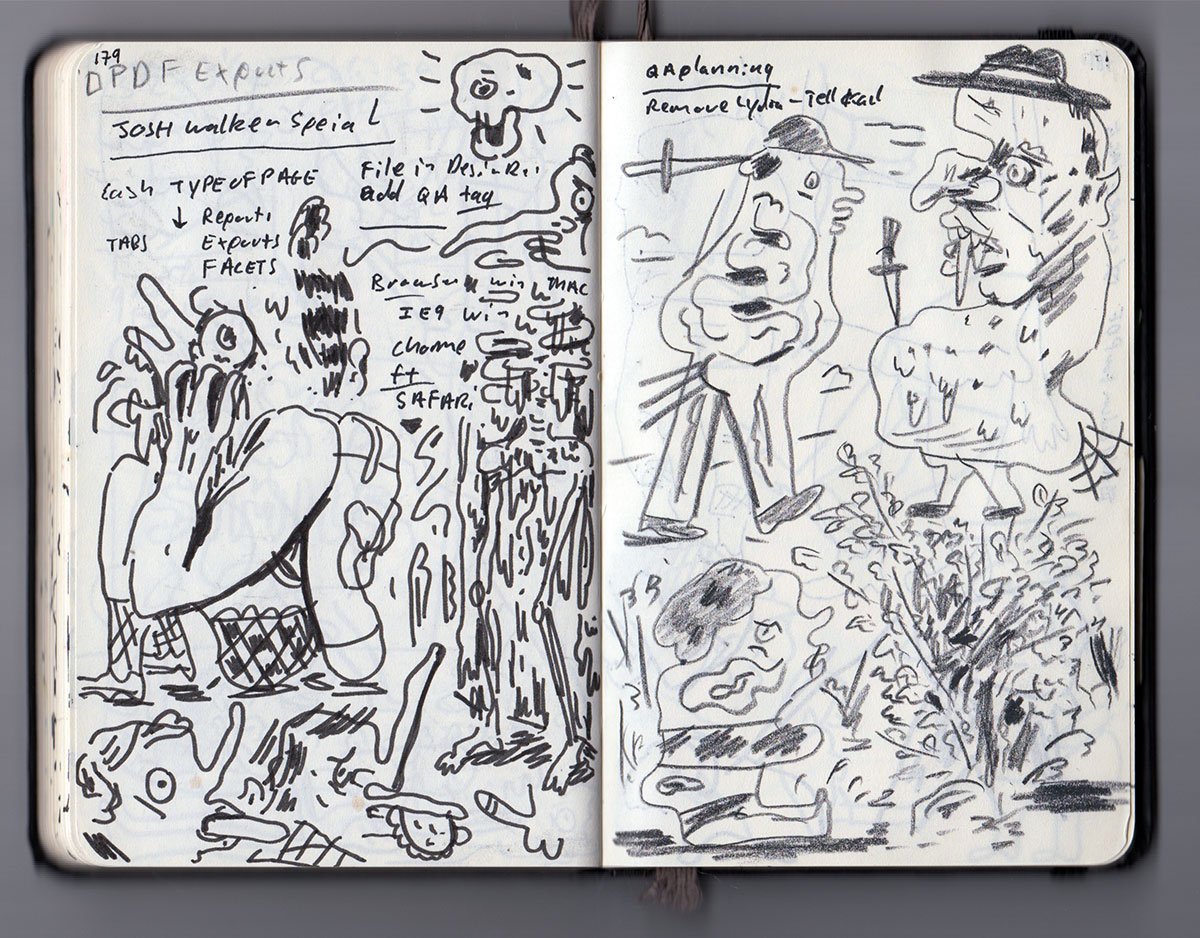 179
DPDF Exports
JOSH walker Speial
TYPE OF PAGE
↓ Reports
TABS
Exports
FACETS
File in
add QA tag
Browser win MAC
IE9 win
chorme
ft
SAFARI
QA planning
Remove Lydia - Tell Karl